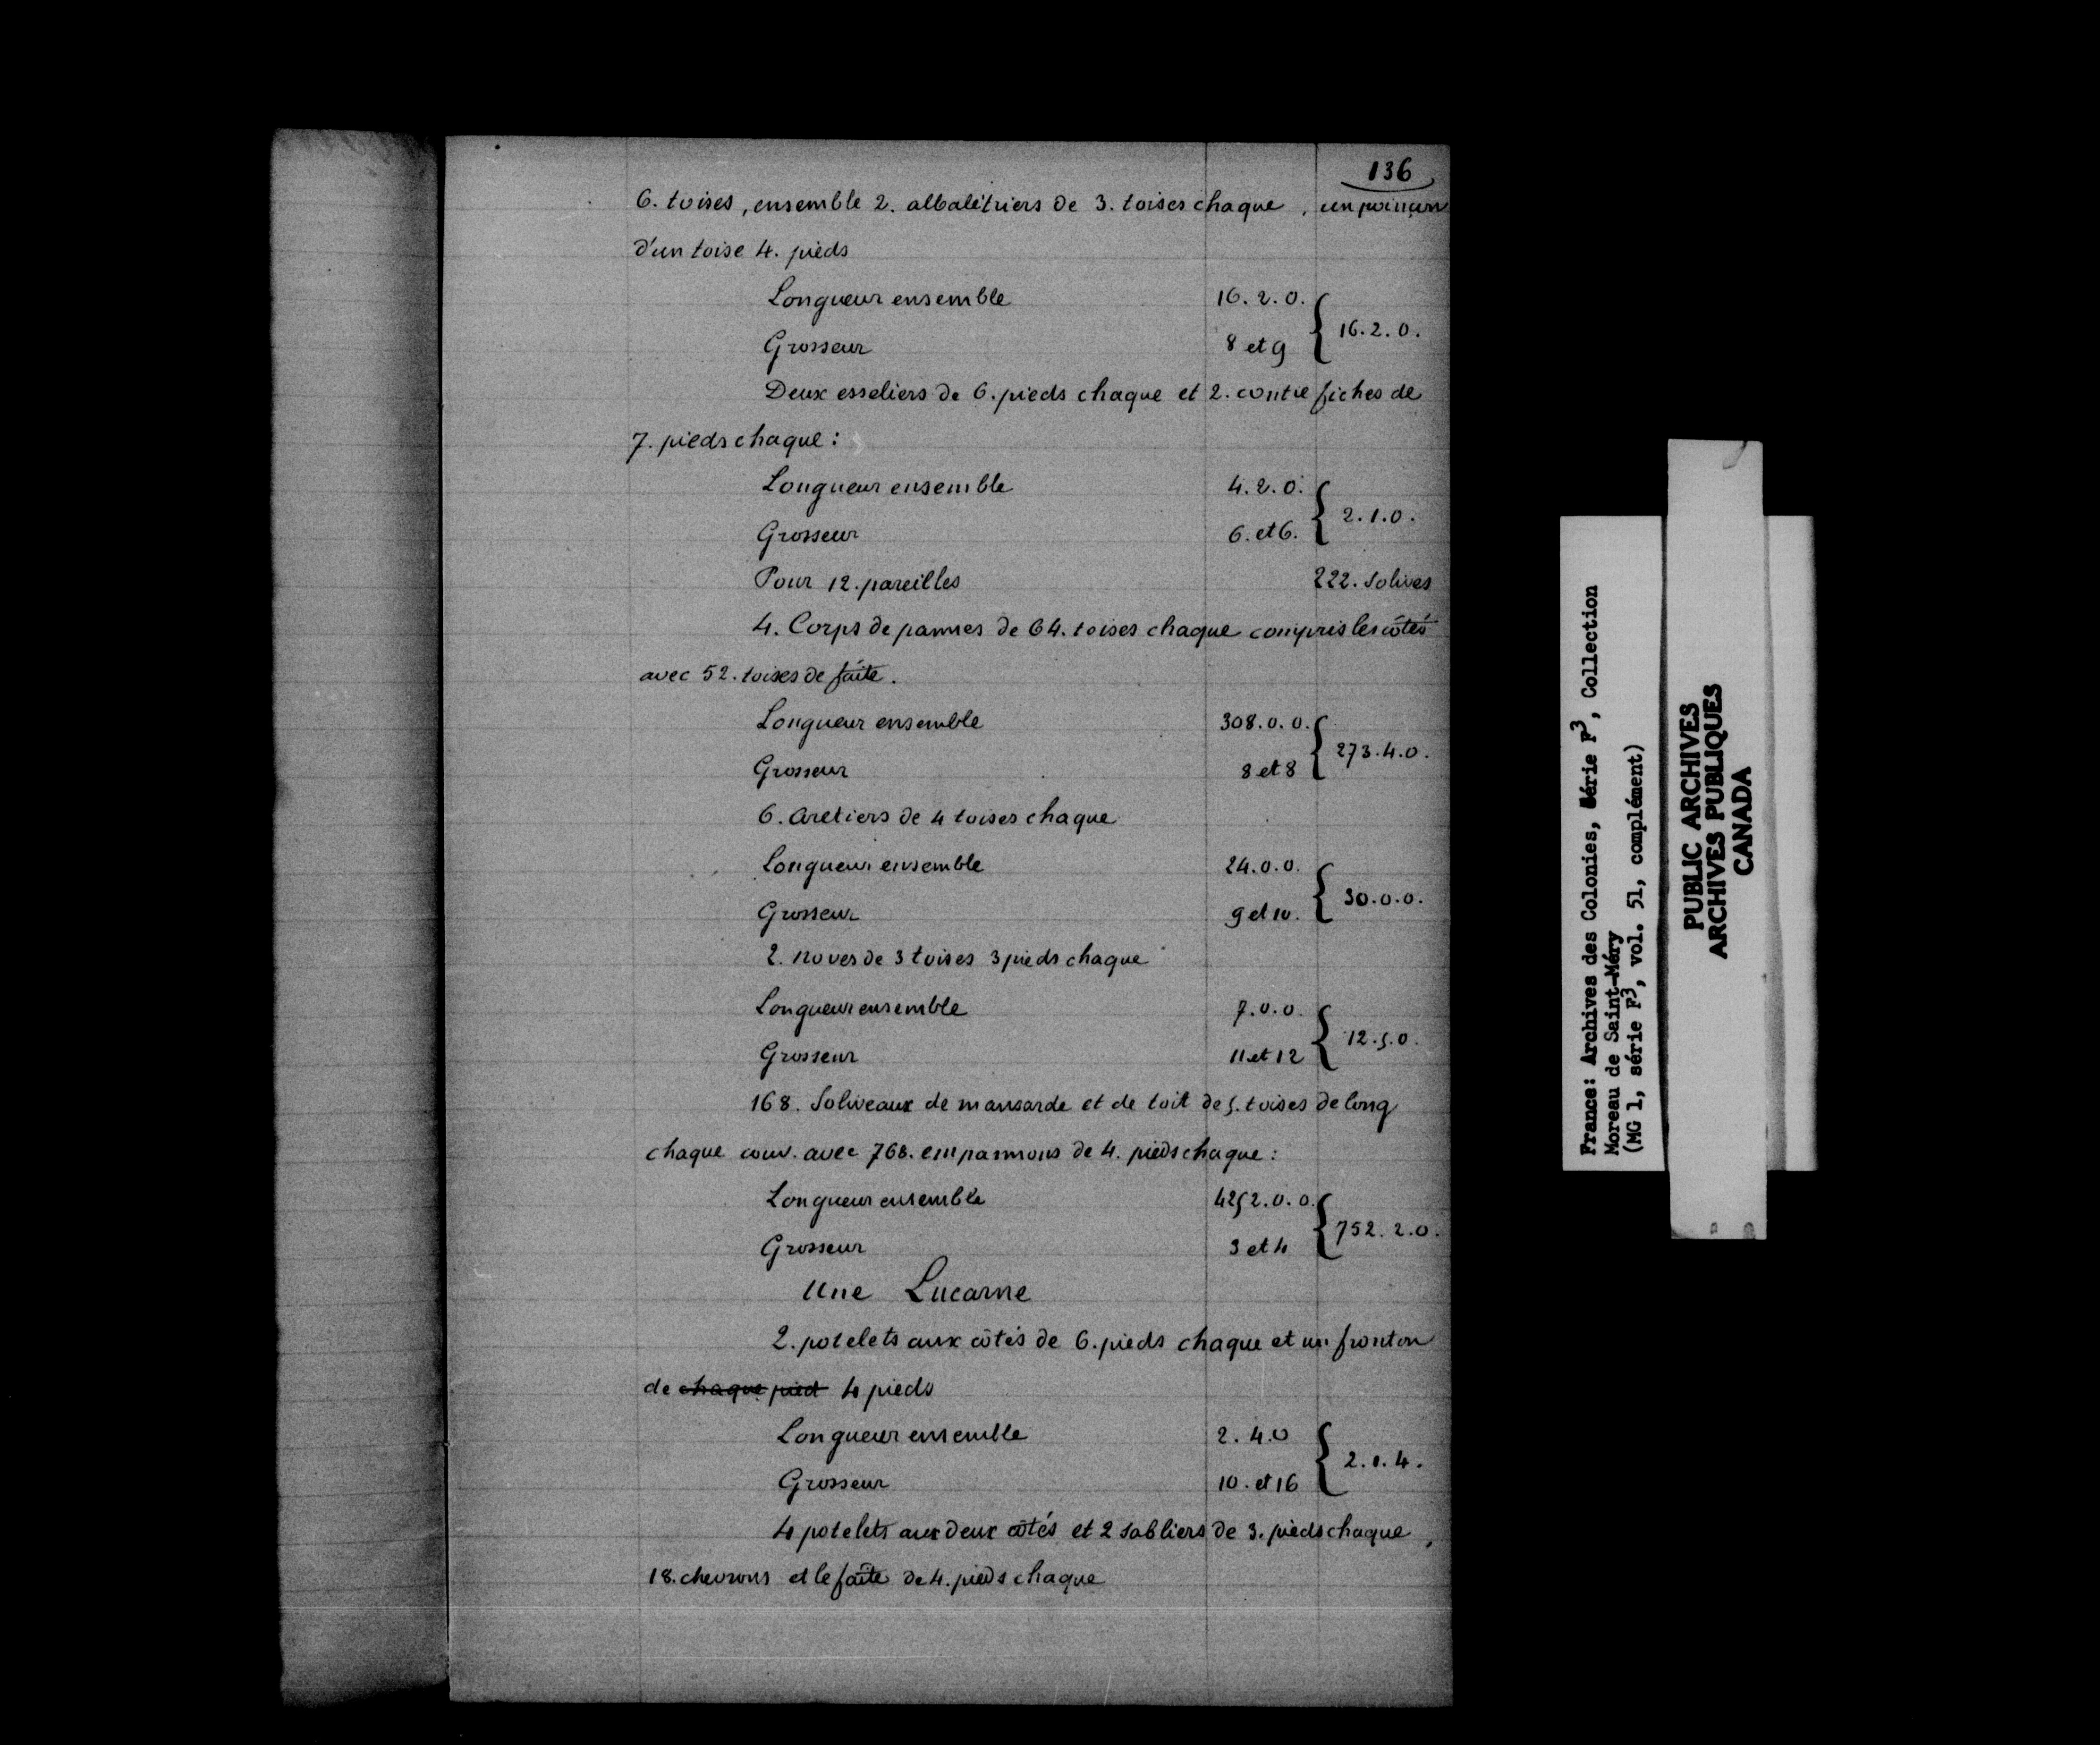 136
6. toises, ensemble 2. albalétriers de 3. toises chaque, un poinçon
d'un toise 4. pieds
Longueur ensemble 16. 2. 0. { 16. 2. 0.
Grosseur 8 et 9
Deux esseliers de 6. pieds chaque et 2. contre fiches de
7. pieds chaque :
Longueur ensemble 4. 2. 0. { 2. 1. 0.
Grosseur 6. et 6.
Pour 12. pareilles 222. Solives
4. Corps de pannes de 64. toises chaque compris les côtés
avec 52. toises de faîte.
Longueur ensemble 308. 0. 0. { 273. 4. 0.
Grosseur 8 et 8
6. aretiers de 4 toises chaque
Longueur ensemble 24. 0. 0. { 30. 0. 0.
Grosseur 9 et 10.
2. noves de 3 toises 3 pieds chaque
Longueur ensemble 7. 0. 0. { 12. 5. 0.
Grosseur 11 et 12
168. Soliveaux de mansarde et de toit de 5. toises de long
chaque couv. avec 768. empannons de 4. pieds chaque :
Longueur ensemble 4252. 0. 0. { 752. 2. 0.
Grosseur 3 et 4
Une Lucarne
2. potelets aux côtés de 6. pieds chaque et un fronton
de chaque pied 4 pieds
Longueur ensemble 2. 4. 0 { 2. 1. 4.
Grosseur 10. et 16
4 potelets aux deux côtés et 2 sabliers de 3. pieds chaque,
18. chevrons et le faîte de 4. pieds chaque
France: Archives des Colonies, Série F3, Collection
Moreau de Saint-Méry
(MG 1, série F3, vol. 51, complément)
PUBLIC ARCHIVES
ARCHIVES PUBLIQUES
CANADA